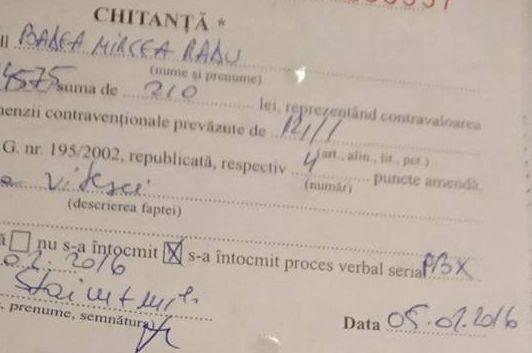 CHITANȚĂ *
BADEA MIRCEA RADU
(nume și prenume)
4575 suma de 210 lei, reprezentând contravaloarea
menzii contravenționale prevăzute de 121/1
(art., alin., lit., pct.)
G. nr. 195/2002, republicată, respectiv 4 puncte amendă,
(număr)
vitezei
(descrierea faptei)
ă nu s-a întocmit X s-a întocmit proces verbal seria PBX
2016
, prenume, semnătura
Data 05.02.2016